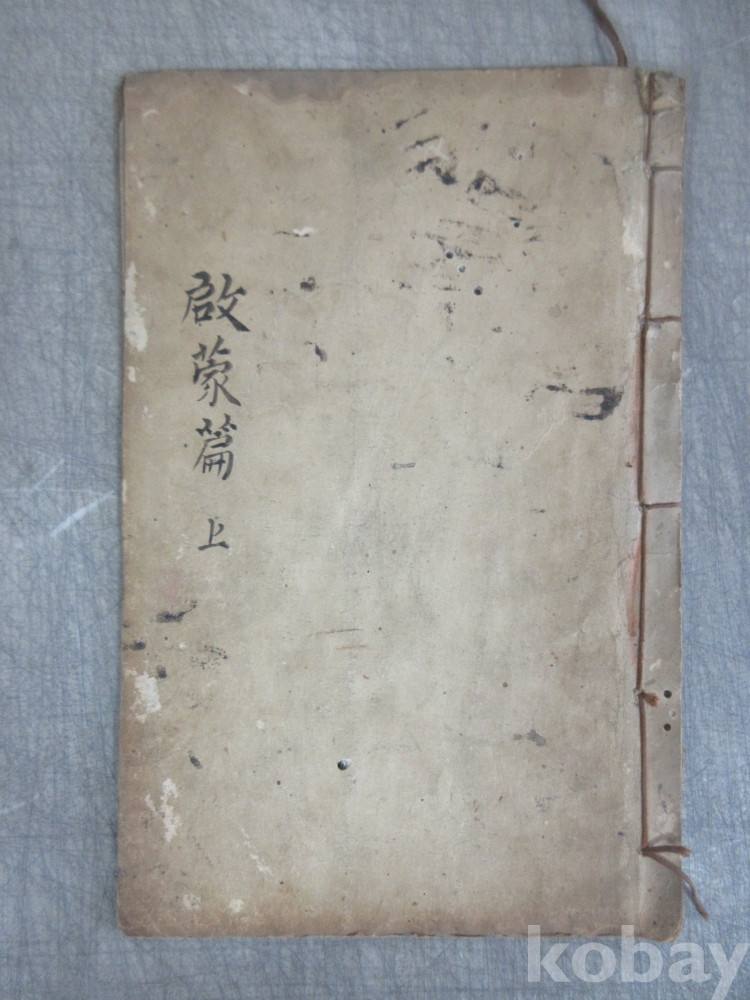 啟蒙篇 上
kobay